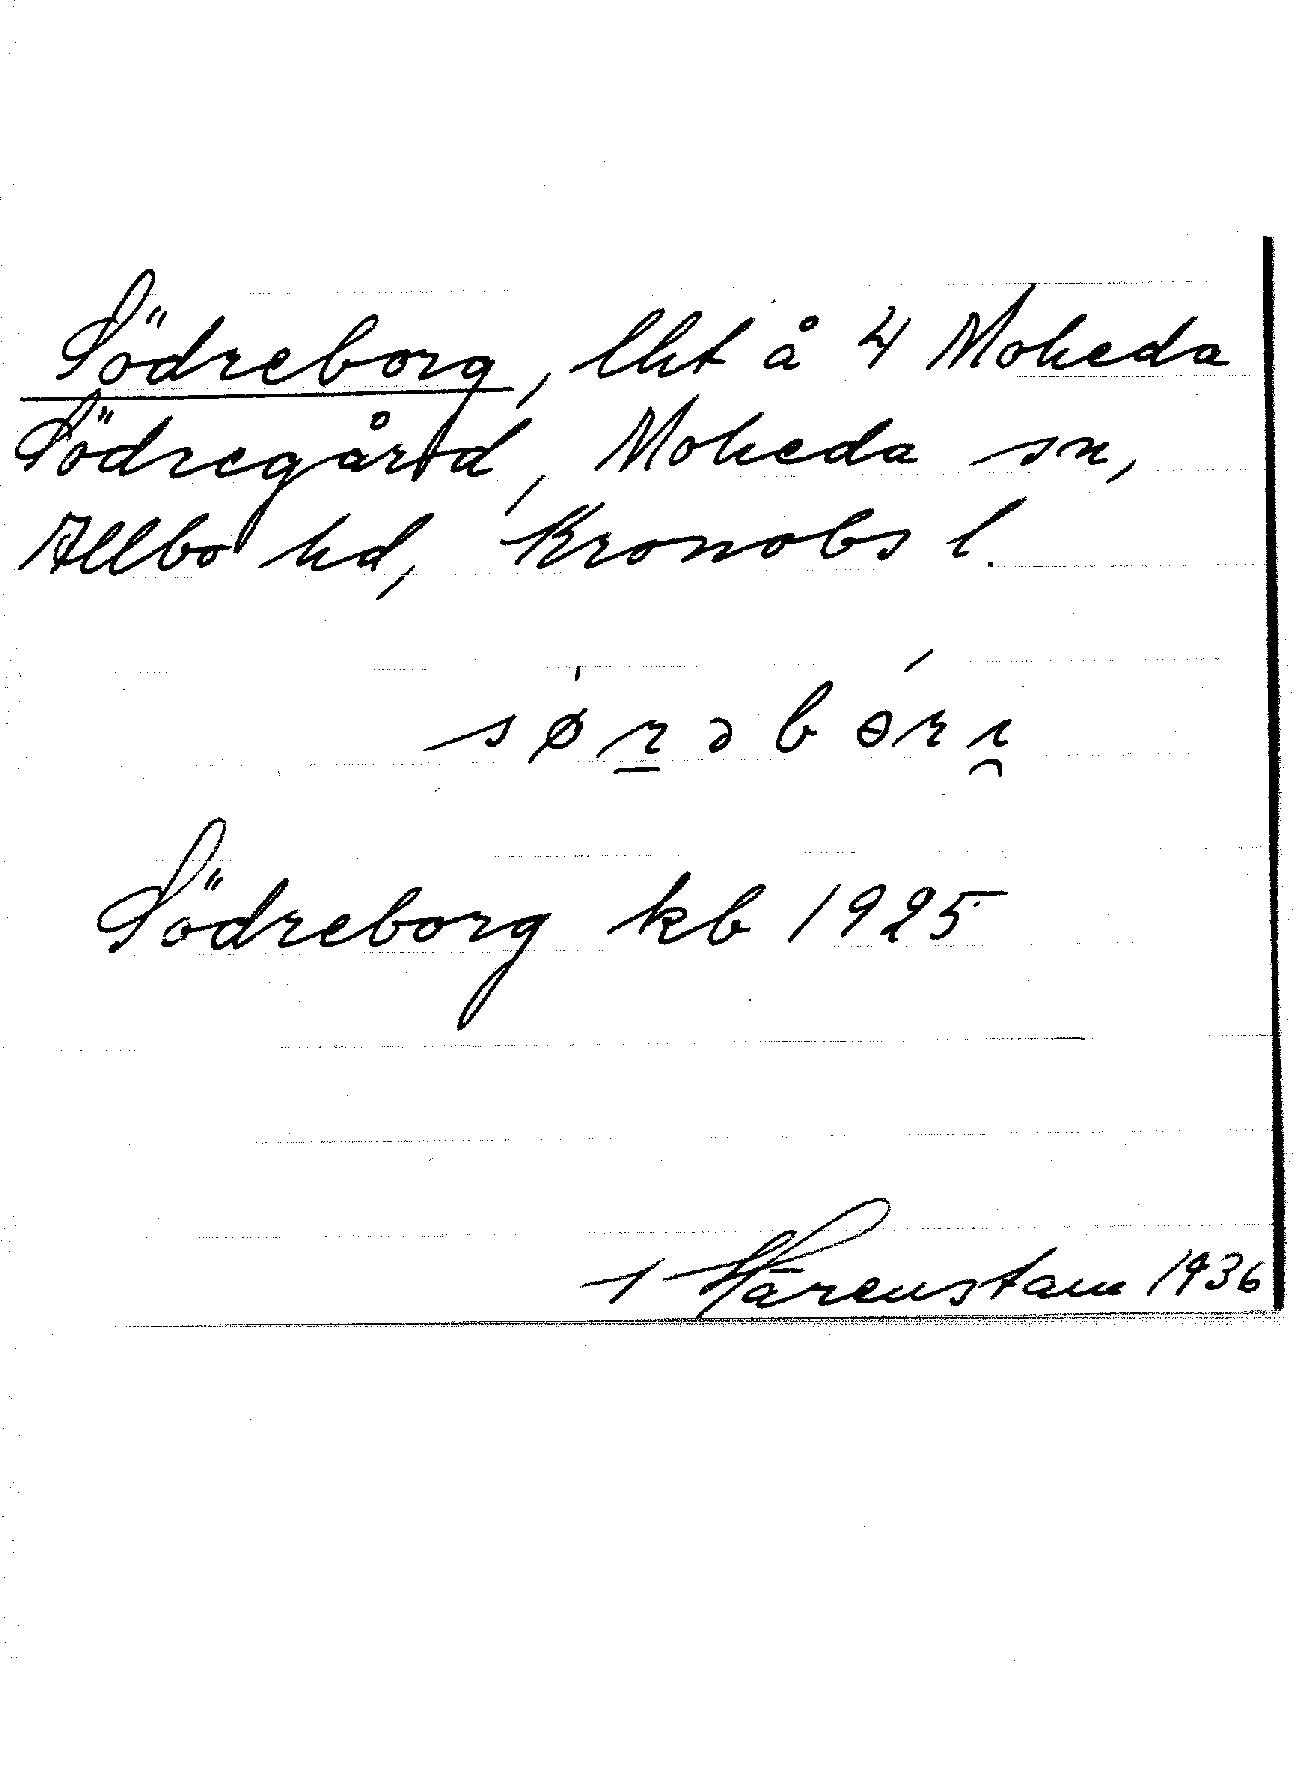 Södreborg, lht å 4 Moheda
Södregård, Moheda sn,
Allbo hd, Kronobs l.
Södreborg kb 1925
Härenstam 1936